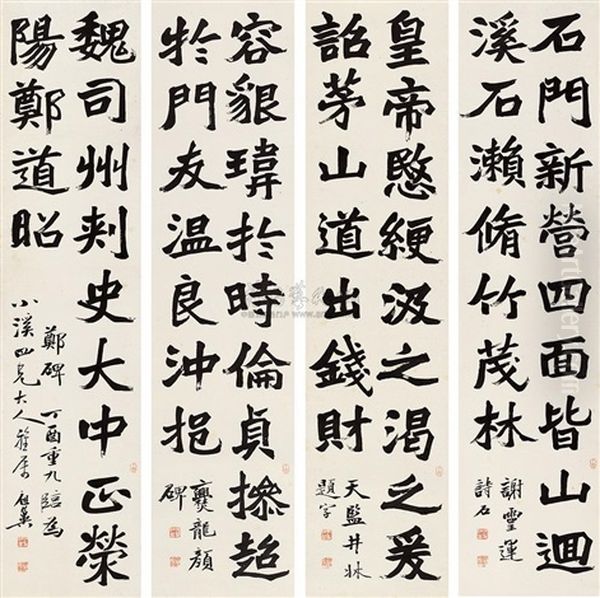 石門新營四面皆山迴
溪石瀨脩竹茂林
謝靈運
詩石
皇帝愍綆汲之渴之爰
詔茅山道出錢財
天監井牀
題字
容貌瑋於時倫貞操超
於門友温良沖挹
爨龍顏
碑
魏司州刺史大中正滎
陽鄭道昭
鄭碑 丁酉重九臨為
小溪四兄大人雅屬 祖翼